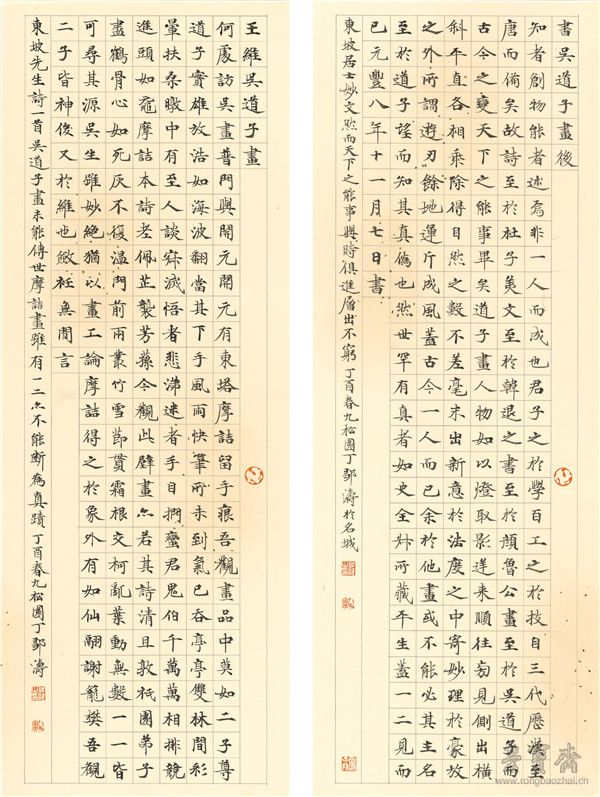 書吳道子畫後
知者創物能者述焉非一人而成也君子之於學百工之於技自三代歷漢至
唐而備矣故詩至於杜子美文至於韓退之書至於顏魯公畫至於吳道子而
古今之變天下之能事畢矣道子畫人物如以燈取影逆來順往旁見側出橫
斜平直各相乘除得自然之數不差毫末出新意於法度之中寄妙理於豪放
之外所謂遊刃餘地運斤成風蓋古今一人而已余於他畫或不能必其主名
至於道子望而知其真偽也然世罕有真者如史全叔所藏平生蓋一二見而
已元豐八年十一月七日書
東坡居士妙文然而天下之能事與時俱進層出不窮丁酉春九松園丁鄒濤於名城
王維吳道子畫
何處訪吳畫普門與開元開元有東塔摩詰留手痕吾觀畫品中莫如二子尊
道子實雄放浩如海波翻當其下手風雨快筆所未到氣已吞亭亭雙林間彩
暈扶桑暾中有至人談寂滅悟者悲涕迷者手自捫蠻君鬼伯千萬萬相排競
進頭如黿摩詰本詩老佩芷襲芳蓀今觀此壁畫亦若其詩清且敦祇園弟子
盡鶴骨心如死灰不復溫門前兩叢竹雪節貫霜根交柯亂葉動無數一一皆
可尋其源吳生雖妙絕猶以畫工論摩詰得之於象外有如仙翮謝籠樊吾觀
二子皆神俊又於維也斂衽無間言
東坡先生詩一首吳道子畫未能傳世摩詰畫雖有一二亦不能斷為真蹟丁酉春九松園丁鄒濤
榮寶齋
www.rongbaozhai.cn